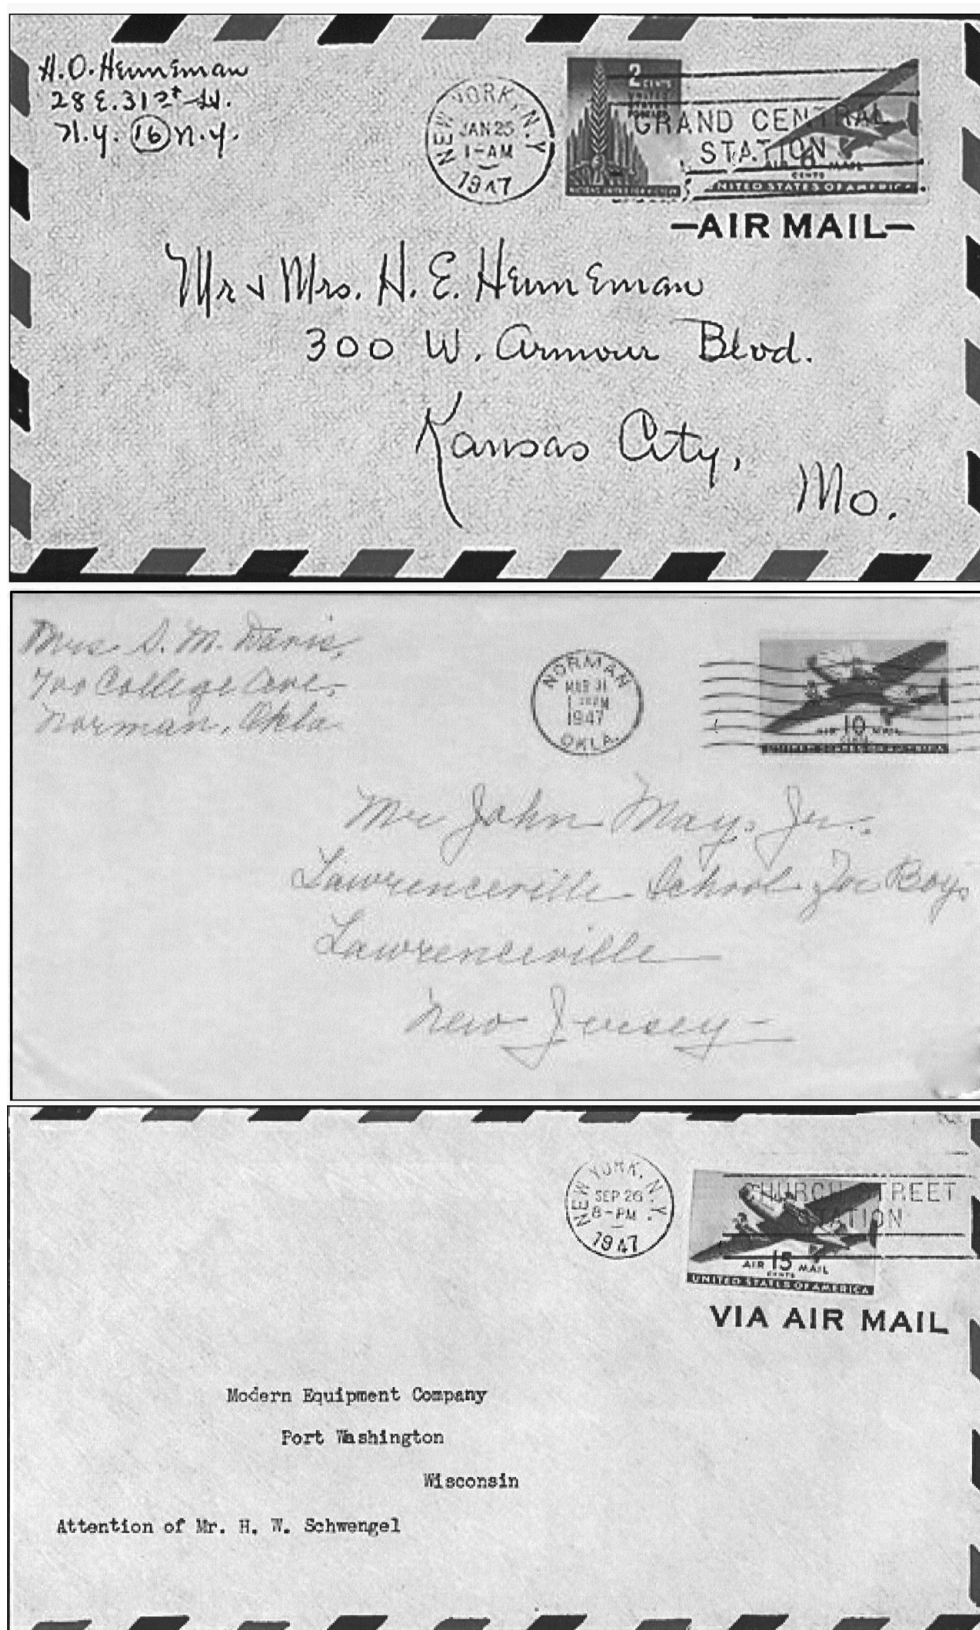 H. O. Henneman
28 E. 31st St.
N.Y. 16 N.Y.
NEW YORK, N.Y.
JAN 25
1-AM
1947
2 CENTS
GRAND CENTRAL
STATION
6
AIR MAIL
CENTS
UNITED STATES OF AMERICA
-AIR MAIL-
Mr & Mrs. H. E. Henneman
300 W. Armour Blvd.
Kansas City,
Mo.
Mrs S. M. Davis,
700 College Ave,
Norman, Okla
NORMAN
MAR 31
1947
OKLA.
AIR 10 MAIL
CENTS
UNITED STATES OF AMERICA
Mr John Mays Jr.
Lawrenceville School For Boys
Lawrenceville
New Jersey
NEW YORK, N.Y.
SEP 26
8-PM
1947
CHURCH STREET
STATION
AIR 15 MAIL
CENTS
UNITED STATES OF AMERICA
VIA AIR MAIL
Modern Equipment Company
Port Washington
Wisconsin
Attention of Mr. H. W. Schwengel